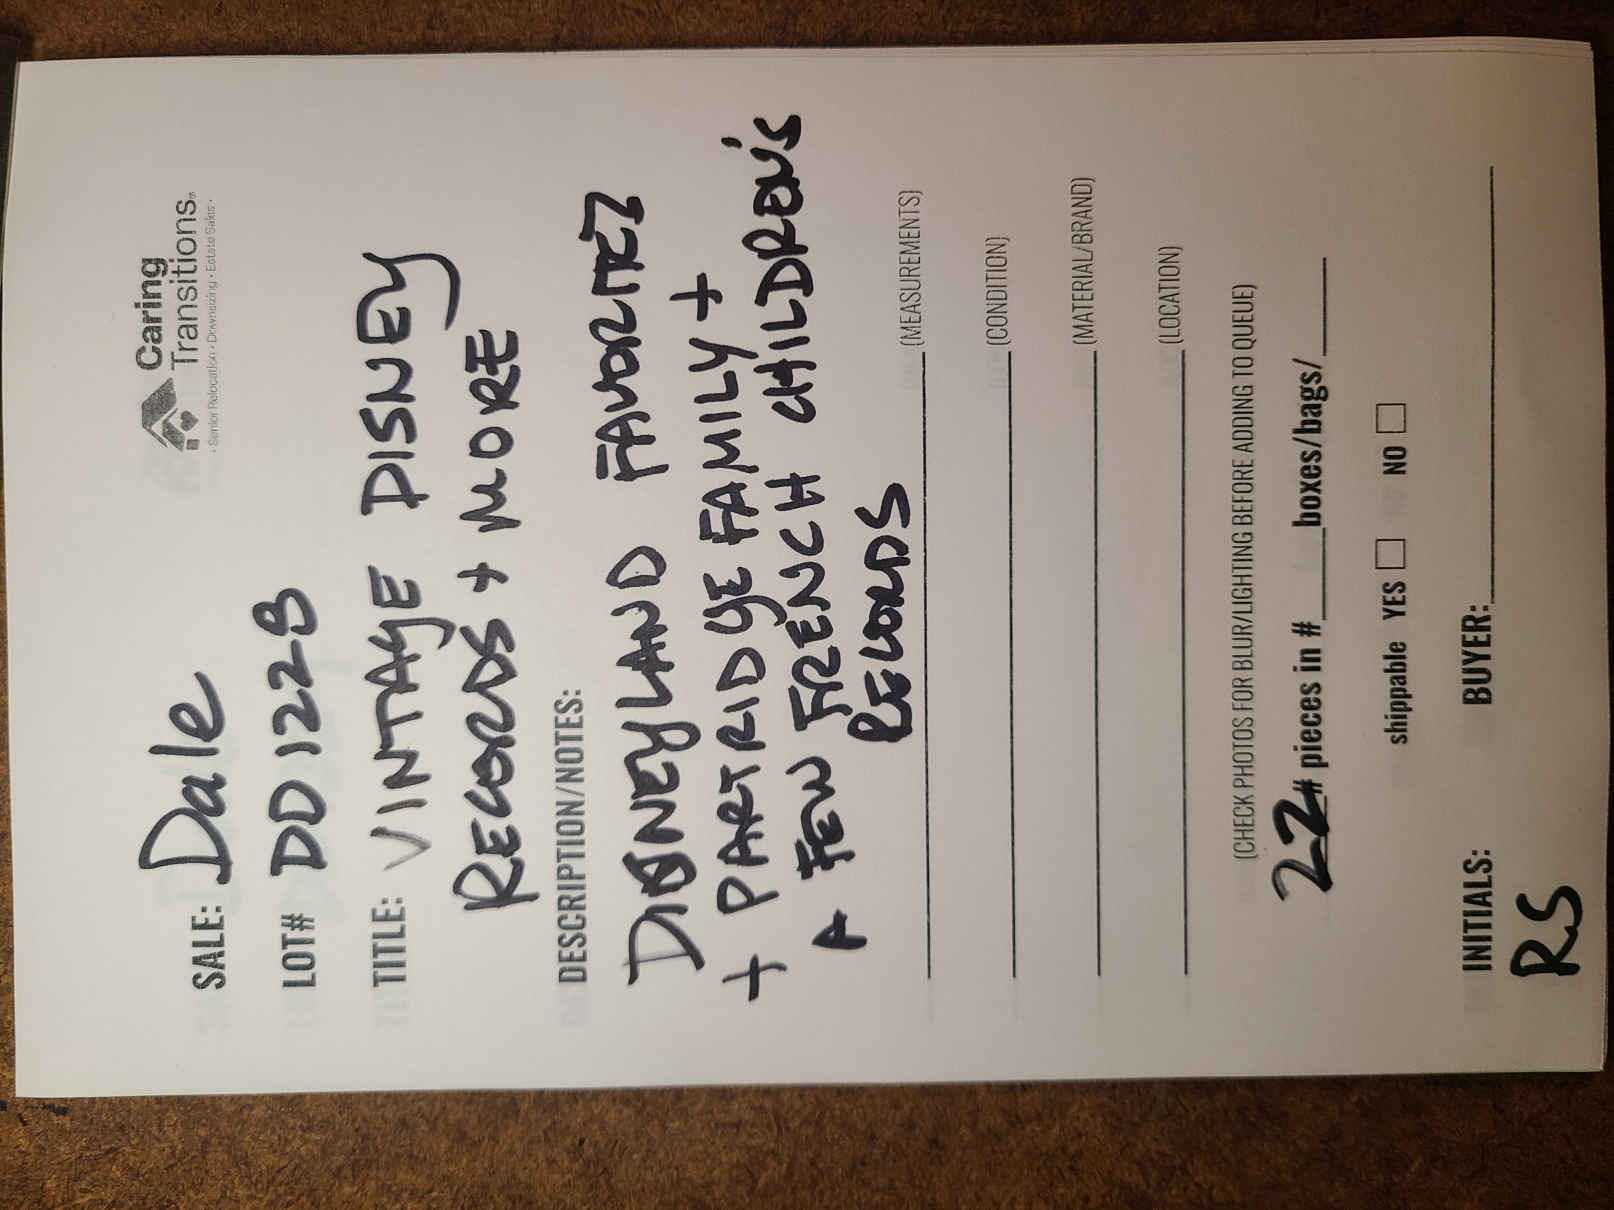 Caring
Transitions®
• Senior Relocation • Downsizing • Estate Sales •
SALE: Dale
LOT# DD1228
TITLE: VINTAGE DISNEY
RECORDS + MORE
DESCRIPTION/NOTES:
DISNEYLAND FAVORITES
+ PARTRIDGE FAMILY +
A FEW FRENCH CHILDREN'S
RECORDS
(MEASUREMENTS)
(CONDITION)
(MATERIAL/BRAND)
(LOCATION)
(CHECK PHOTOS FOR BLUR/LIGHTING BEFORE ADDING TO QUEUE)
22 # pieces in # ____ boxes/bags/____
shippable YES □ NO □
INITIALS: BUYER:
RS